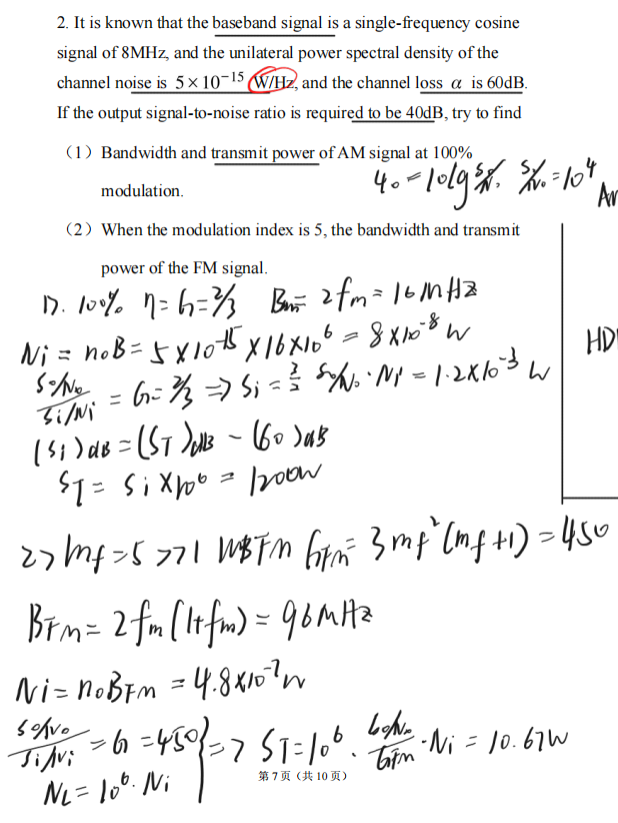 2. It is known that the baseband signal is a single-frequency cosine
signal of 8MHz, and the unilateral power spectral density of the
channel noise is 5×10⁻¹⁵ W/Hz, and the channel loss α is 60dB.
If the output signal-to-noise ratio is required to be 40dB, try to find
（1）Bandwidth and transmit power of AM signal at 100%
modulation.
40=10lg So/No, So/No=10⁴
Am
（2）When the modulation index is 5, the bandwidth and transmit
power of the FM signal.
1). 100% η=G=2/3 Bm= 2fm=16MHz
Ni = n₀B=5×10⁻¹⁵×16×10⁶ = 8×10⁻⁸ W
HD
(So/No)/(Si/Ni) = G=2/3 => Si = 3/2 So/No·Ni = 1.2×10⁻³ W
(Si)dB=(ST)dB-(60)dB
ST= Si×10⁶ = 1200W
2> mf=5 >>1 WBFM GFM= 3mf²(mf+1)=450
BFM= 2fm(1+fm)=96MHz
Ni=n₀BFM =4.8×10⁻⁷W
(So/No)/(Si/Ni) =G=450 } => ST=10⁶·(So/No)/GFM·Ni = 10.67W
NL=10⁶·Ni
第 7 页（共 10 页）